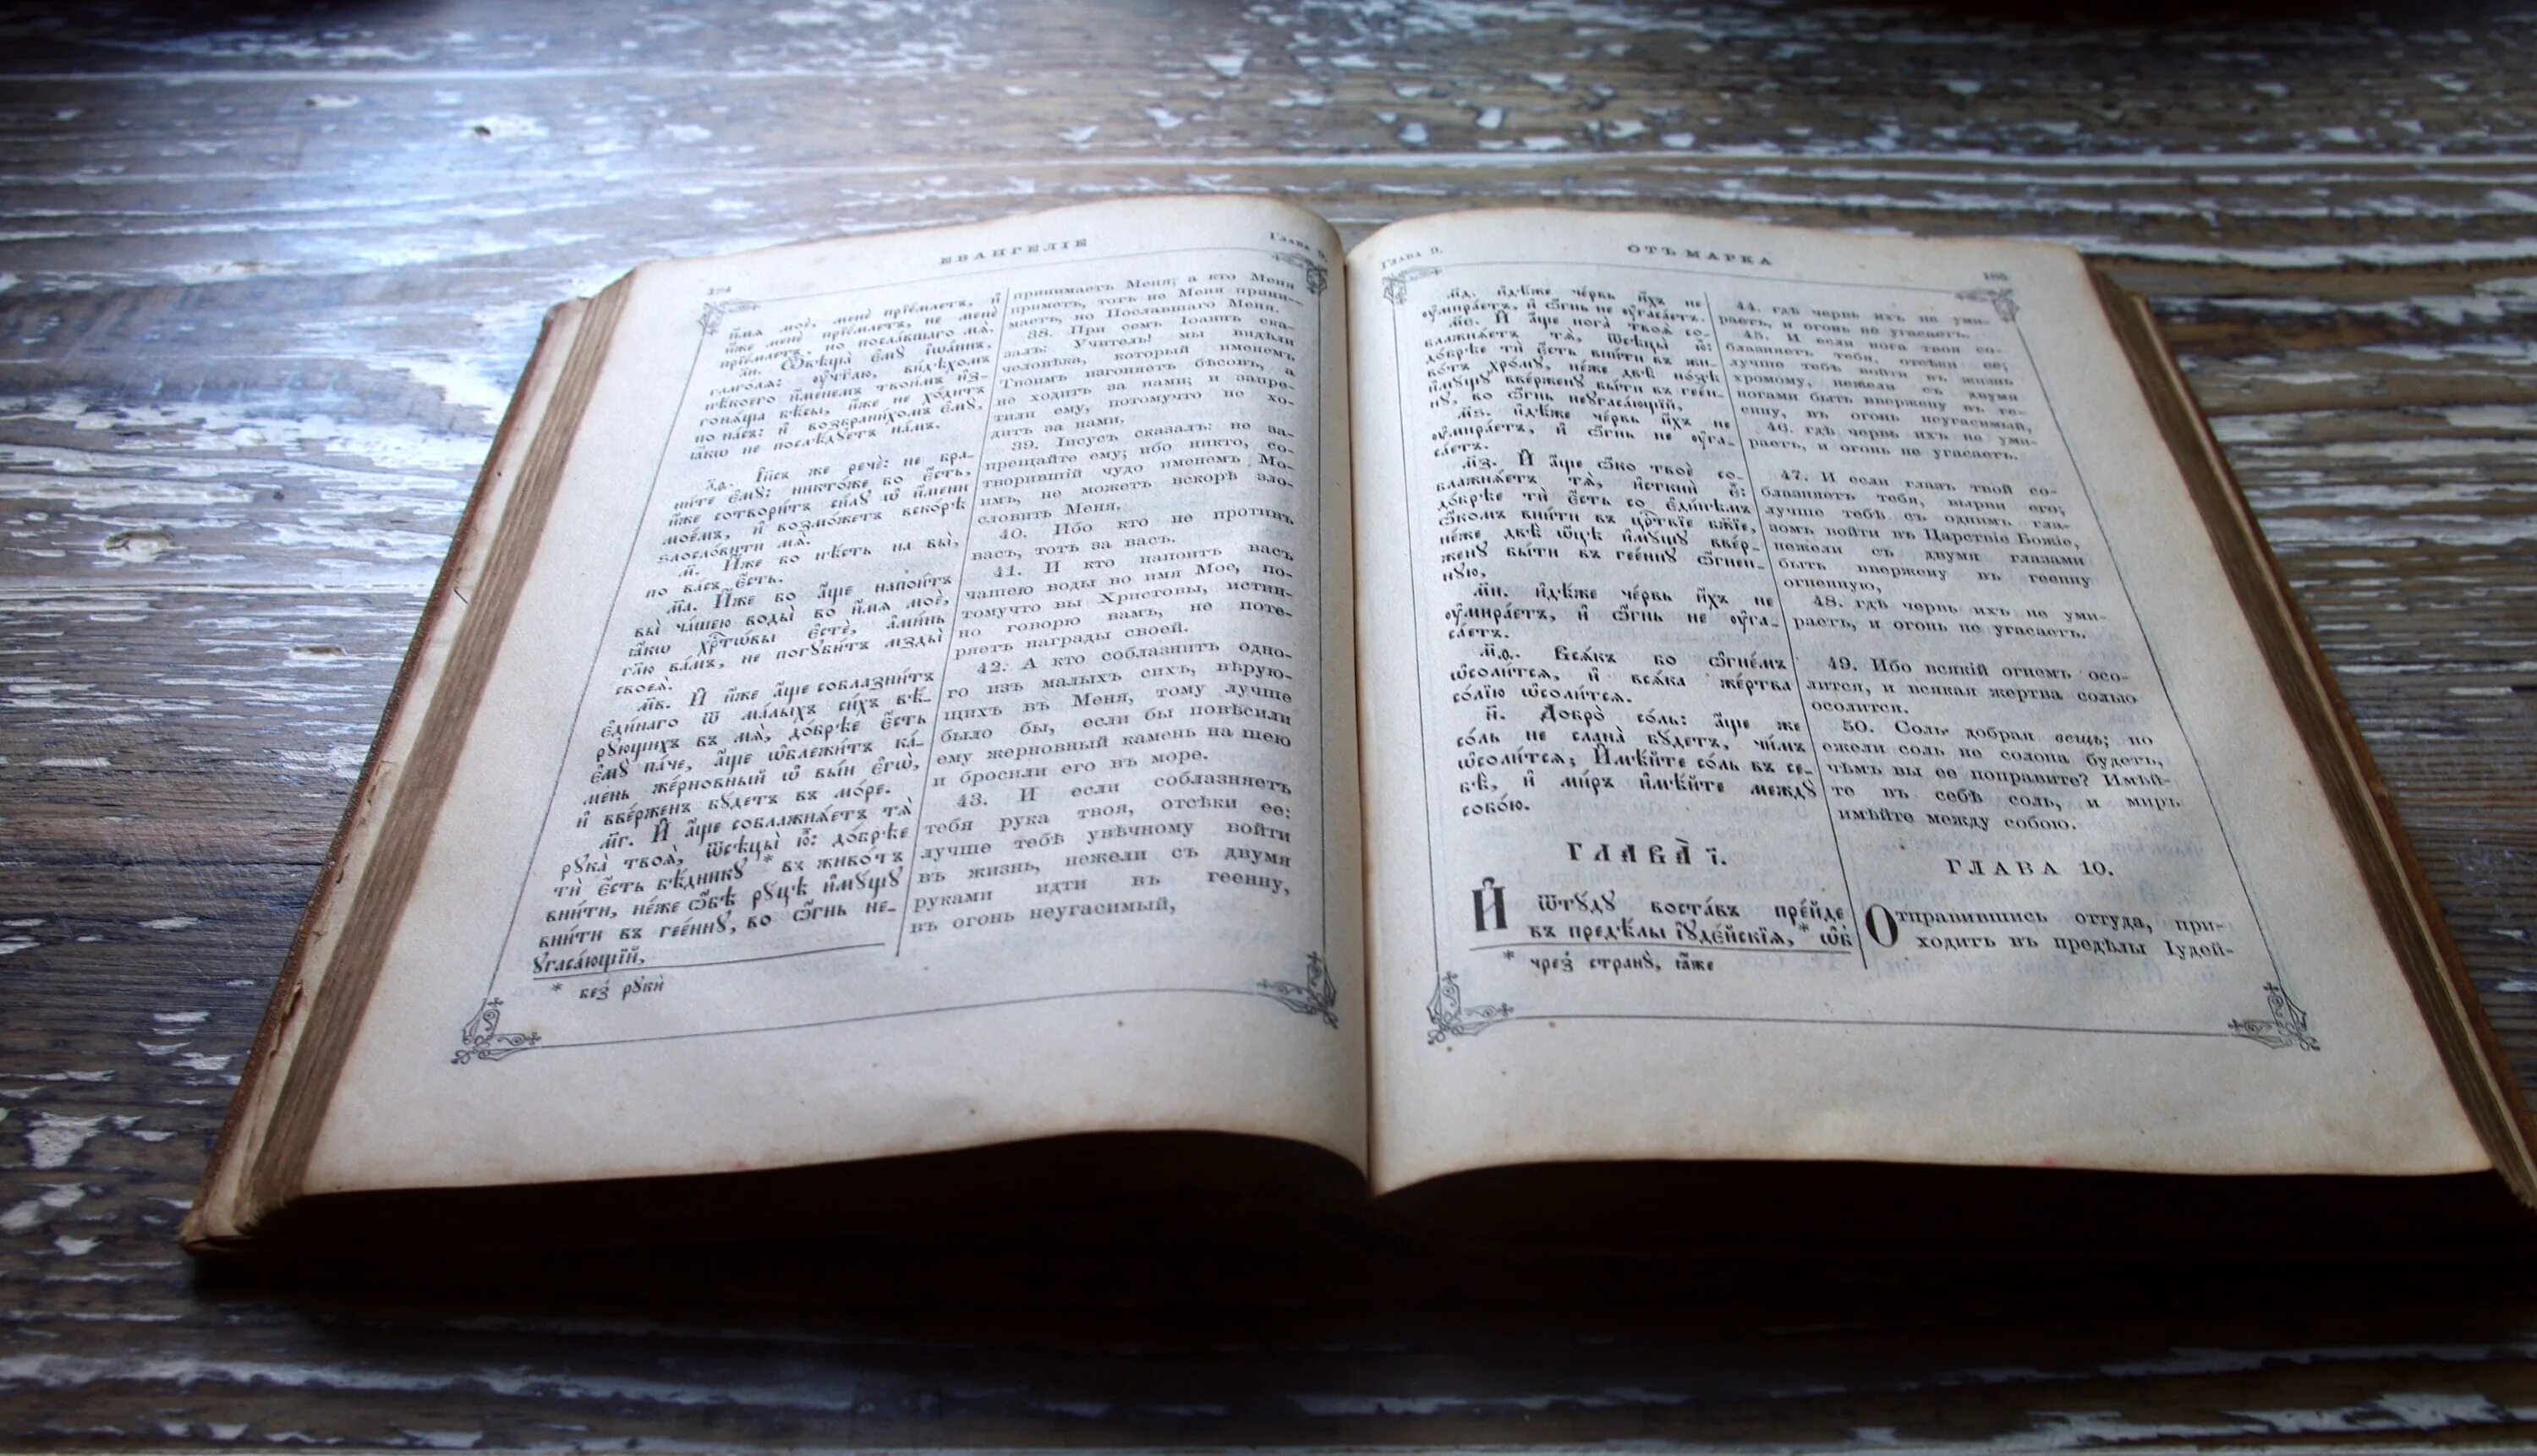 184
ЕВАНГЕЛІЕ
Глава 9.
и҆́мѧ моѐ, менѐ прїе́млетъ, и҆
и҆́же менѐ прїе́млетъ, не менѐ
прїе́млетъ, но посла́вшаго мѧ̀.
л҃и. Ѿвѣща̀ є҆мꙋ̀ і҆ѡа́ннъ,
глаго́лѧ: ᲂу҆чт҃лю, ви́дѣхомъ
нѣ́коего и҆́менемъ твои́мъ и҆з-
гонѧ́ща бѣ́сы, и҆́же не хо́дитъ
по на́съ: и҆ возбрани́хомъ є҆мꙋ̀,
ꙗ҆́кѡ не послѣ́дꙋетъ на́мъ.
л҃ѳ. І҆и҃съ же речѐ: не бра-
ни́те є҆мꙋ̀: никто́же бо є҆́сть,
и҆́же сотвори́тъ си́лꙋ ѡ҆ и҆́мени
мое́мъ, и҆ возмо́жетъ вско́рѣ
ѕлосло́вити мѧ̀.
м҃. И҆́же бо нѣ́сть на вы̀,
по ва́съ є҆́сть.
м҃а. И҆́же бо а҆́ще напои́тъ
вы̀ ча́шею воды̀ во и҆́мѧ моѐ,
ꙗ҆́кѡ хрⷭ҇тѡ́вы є҆стѐ, а҆ми́нь
гл҃ю ва́мъ, не погꙋби́тъ мзды̀
своеѧ̀.
м҃в. И҆ и҆́же а҆́ще соблазни́тъ
є҆ди́наго ѿ ма́лыхъ си́хъ вѣ́-
рꙋющихъ въ мѧ̀, до́брѣе є҆́сть
є҆мꙋ̀ па́че, а҆́ще ѡ҆блежи́тъ ка́-
мень же́рновный ѡ҆ вы́и є҆гѡ̀,
и҆ вве́рженъ бꙋ́детъ въ мо́ре.
м҃г. И҆ а҆́ще соблажнѧ́етъ тѧ̀
рꙋка̀ твоѧ̀, ѿсѣцы̀ ю҆̀: до́брѣе
тѝ є҆́сть бѣ́дникꙋ * въ живо́тъ
вни́ти, не́же ѻ҆́бѣ рꙋ́цѣ и҆мꙋ́щꙋ
вни́ти въ гее́ннꙋ, во ѻ҆́гнь не-
ᲂу҆гаса́ющїй,
* без̾ рꙋкѝ
принимаетъ Меня; а кто Меня
приметъ, тотъ не Меня прини-
маетъ, но Пославшаго Меня.
38. При семъ Іоаннъ ска-
залъ: Учитель! мы видѣли
человѣка, который именемъ
Твоимъ изгоняетъ бѣсовъ, а
не ходитъ за нами; и запре-
тили ему, потомучто не хо-
дитъ за нами.
39. Іисусъ сказалъ: не за-
прещайте ему; ибо никто, со-
творившій чудо именемъ Мо-
имъ, не можетъ вскорѣ зло-
словить Меня.
40. Ибо кто не противъ
васъ, тотъ за васъ.
41. И кто напоитъ васъ
чашею воды во имя Мое, по-
томучто вы Христовы, истин-
но говорю вамъ, не поте-
ряетъ награды своей.
42. А кто соблазнитъ одно-
го изъ малыхъ сихъ, вѣрую-
щихъ въ Меня, тому лучше
было бы, если бы повѣсили
ему жерновный камень на шею
и бросили его въ море.
43. И если соблазняетъ
тебя рука твоя, отсѣки ее:
лучше тебѣ увѣчному войти
въ жизнь, нежели съ двумя
руками идти въ геенну,
въ огонь неугасимый,
Глава 9.
ОТЪ МАРКА
185
м҃д. и҆дѣ́же че́рвь и҆́хъ не
ᲂу҆мира́етъ, и҆ ѻ҆́гнь не ᲂу҆гаса́етъ.
м҃е. И҆ а҆́ще нога̀ твоѧ̀ со-
блажнѧ́етъ тѧ̀, ѿсѣцы̀ ю҆̀:
до́брѣе тѝ є҆́сть вни́ти въ жи-
во́тъ хро́мꙋ, не́же двѣ̀ но́зѣ
и҆мꙋ́щꙋ вве́рженꙋ бы́ти въ гее́н-
нꙋ, во ѻ҆́гнь неᲂугаса́ющїй,
м҃ѕ. и҆дѣ́же че́рвь и҆́хъ не
ᲂу҆мира́етъ, и҆ ѻ҆́гнь не ᲂу҆га-
са́етъ.
м҃з. И҆ а҆́ще ѻ҆́ко твоѐ со-
блажнѧ́етъ тѧ̀, и҆сткнѝ є҆̀:
до́брѣе тѝ є҆́сть со є҆ди́нѣмъ
ѻ҆́комъ вни́ти въ црⷭ҇твїе бж҃їе,
не́же двѣ̀ ѻ҆́цѣ и҆мꙋ́щꙋ вве́р-
женꙋ бы́ти въ гее́ннꙋ ѻ҆́гнен-
нꙋю,
м҃и. и҆дѣ́же че́рвь и҆́хъ не
ᲂу҆мира́етъ, и҆ ѻ҆́гнь не ᲂу҆га-
са́етъ.
м҃ѳ. Всѧ́къ бо ѻ҆гне́мъ
ѡ҆соли́тсѧ, и҆ всѧ́ка же́ртва
со́лїю ѡ҆соли́тсѧ.
н҃. Добро̀ со́ль: а҆́ще же
со́ль не слана̀ бꙋ́детъ, чи́мъ
ѡ҆соли́тсѧ; И҆мѣ́йте со́ль въ се-
бѣ̀, и҆ ми́ръ и҆мѣ́йте междꙋ̀
собо́ю.
ГЛАВА̀ І҃.
И҆ ѿтꙋ́дꙋ воста́въ прїи́де
въ предѣ́лы і҆ꙋде́йскїѧ, * ѡ҆б̾
* чрез̾ странꙋ̀, ꙗ҆́же
44. гдѣ червь ихъ не уми-
раетъ, и огонь не угасаетъ.
45. И если нога твоя со-
блазняетъ тебя, отсѣки ее;
лучше тебѣ войти въ жизнь
хромому, нежели съ двумя
ногами быть ввержену въ ге-
енну, въ огонь неугасимый,
46. гдѣ червь ихъ не уми-
раетъ, и огонь не угасаетъ.
47. И если глазъ твой со-
блазняетъ тебя, вырви его;
лучше тебѣ съ однимъ гла-
зомъ войти въ Царствіе Божіе,
нежели съ двумя глазами
быть ввержену въ геенну
огненную,
48. гдѣ червь ихъ не уми-
раетъ, и огонь не угасаетъ.
49. Ибо всякій огнемъ осо-
лится, и всякая жертва солью
осолится.
50. Соль добрая вещь; но
ежели соль не солона будетъ,
чѣмъ вы ее поправите? Имѣй-
те въ себѣ соль, и миръ
имѣйте между собою.
ГЛАВА 10.
Отправившись оттуда, при-
ходитъ въ предѣлы Іудей-